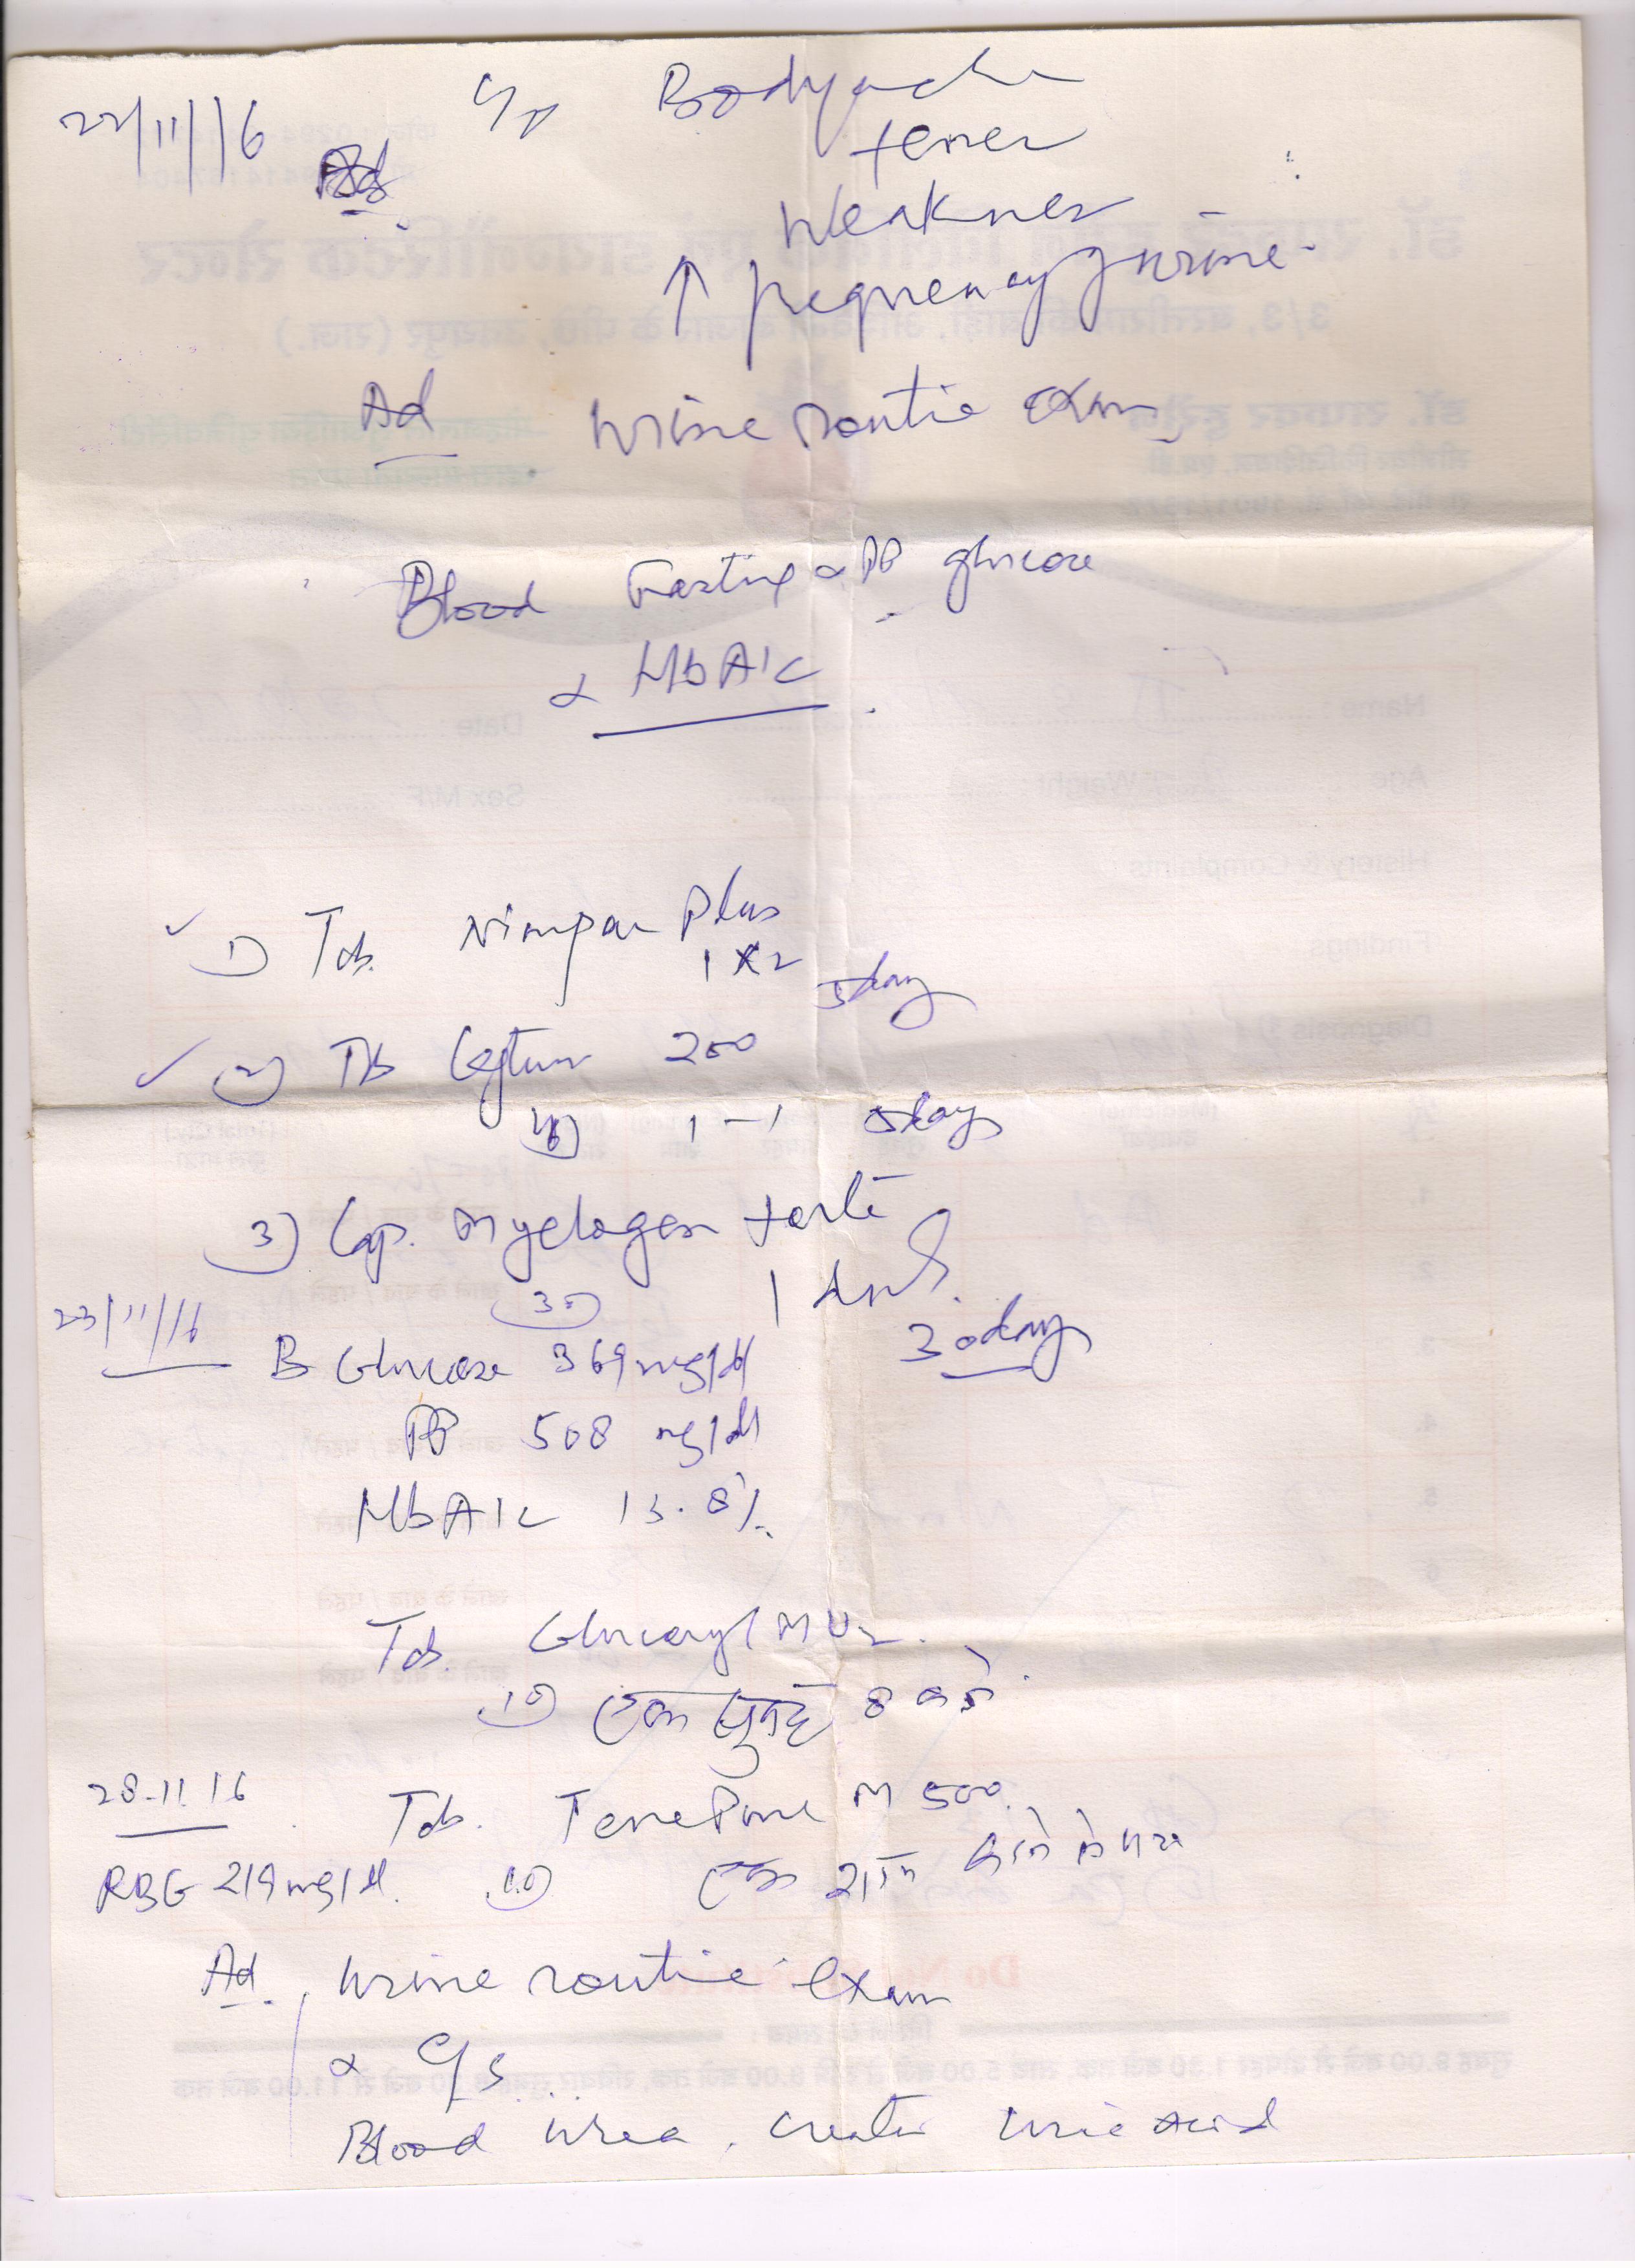 22/11/16 C/o Bodyache
fever
Weakness
↑ frequency of urine
Ad Urine routine exam
Blood Fasting & PP glucose
& HbA1c
1) Tab. Plus
1 x 2 5 day
2) Tab Ceftum 250
1 - 1 5 days
3) Cap. Myelogen forte
(30) 1 daily
30 days
23/11/16
B Glucose 369 mg/dl
PP 508 mg/dl
HbA1c 13.8%
Tab. Glucoryl M V2
(10) एक सुबह 8 बजे
28.11.16 Tab. M 500
RBG 219 mg/dl. (10) एक शाम खाने के बाद
Ad. Urine routine exam
& C/s
Blood Urea, Creatin Uric Acid